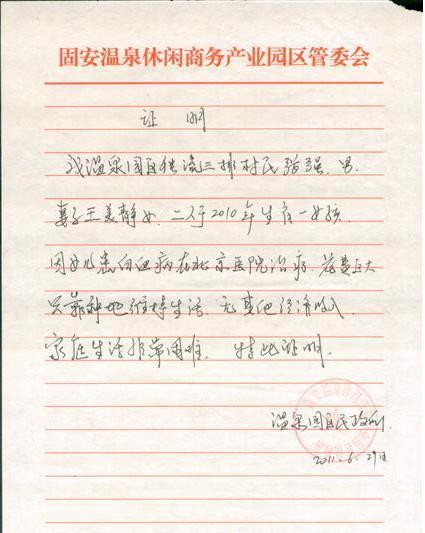 固安温泉休闲商务产业园区管委会
证明
我温泉园区独流三排村民张强,男.
妻子王美静女,二人于2010年生有一女孩
因女儿患白血病在北京医院治疗.花费巨大
只靠种地维持生活.无其他经济收入.
家庭生活非常困难.特此证明.
温泉园区民政所.
2011.6.29日